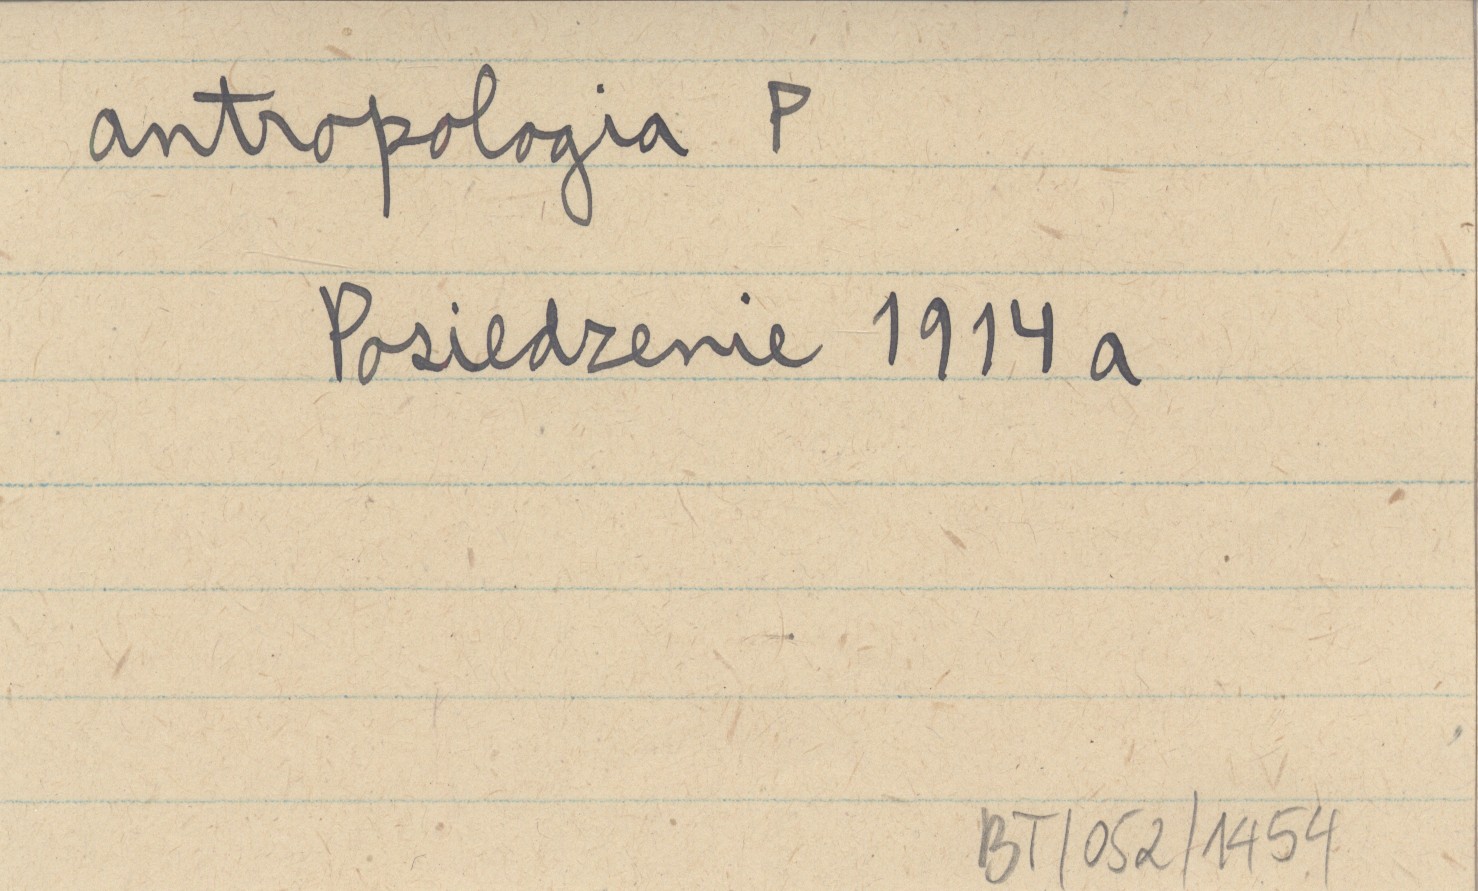 antropologia P
Posiedzenie 1914 a
BT/052/1454